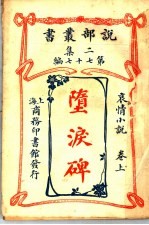 說部叢書
二集
第七十七編
哀情小說 卷上
墮淚碑
上海商務印書館發行